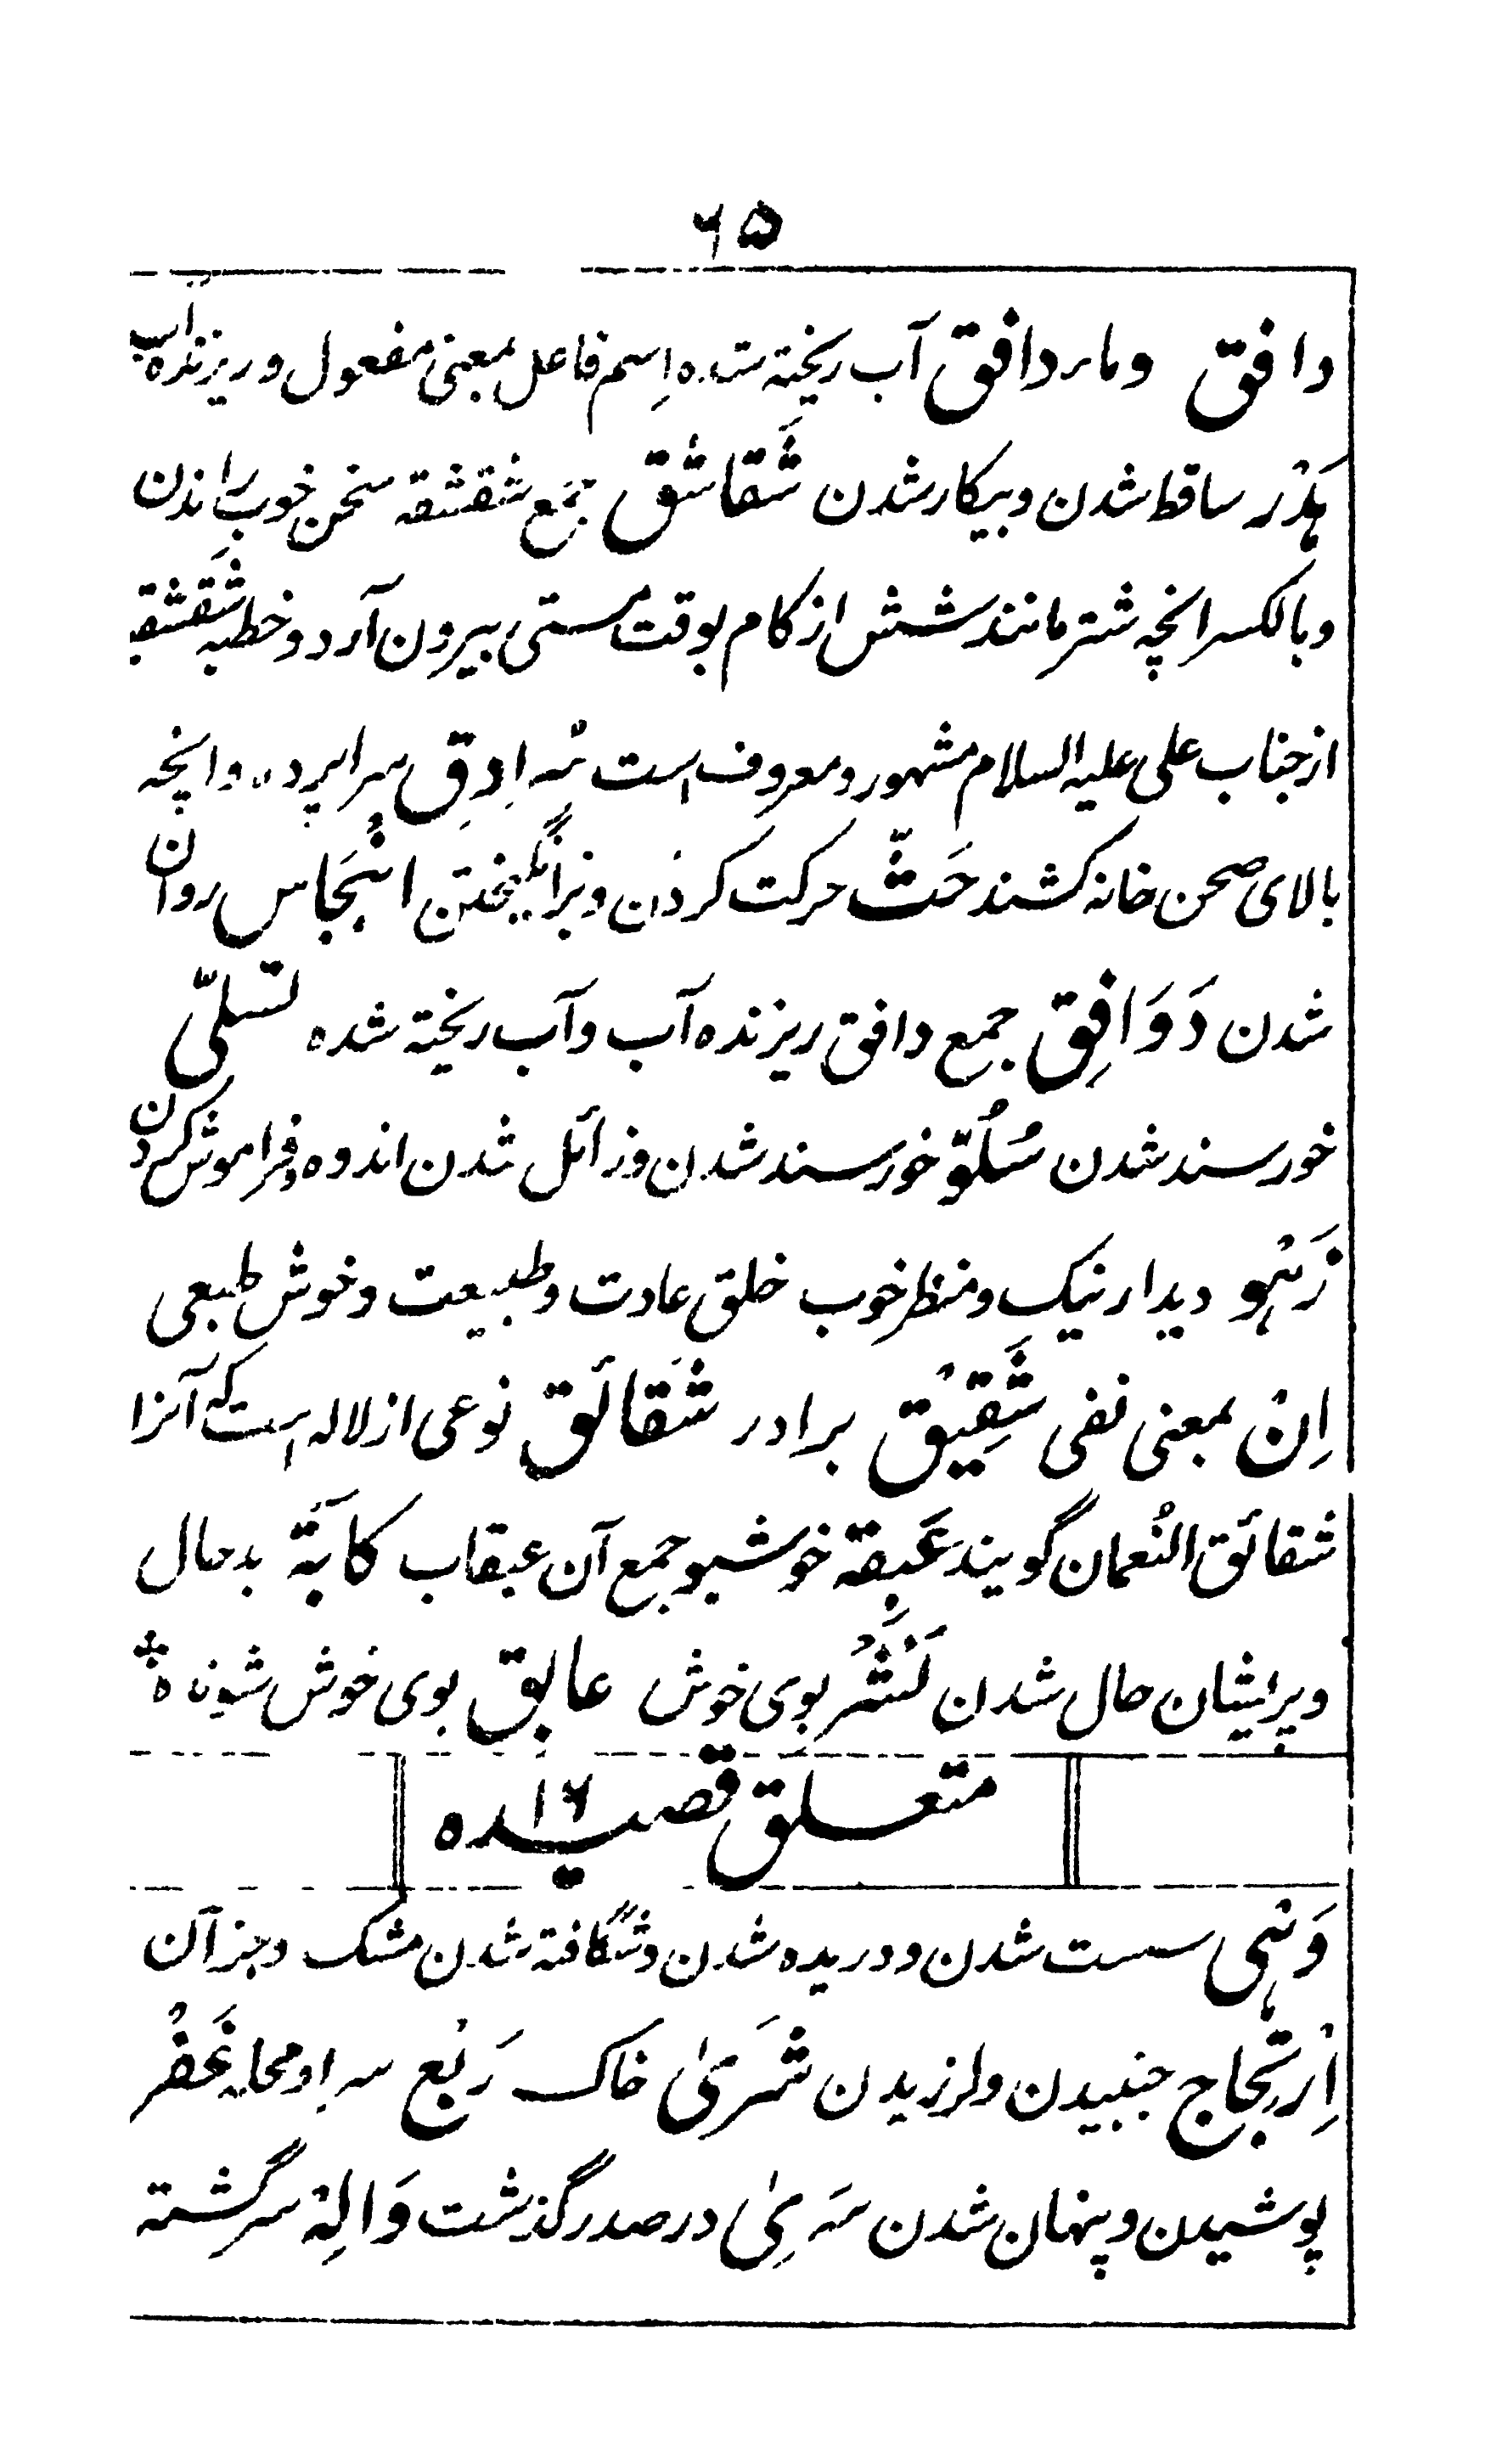 ۶۵
دافق وماء دافق آب ریخته شده اِسم فاعل بمعنی مفعول و ریزنده آب
هَدْر ساقط شدن و بیکار شدن شَقاشق جمع شقشقه سخن خوب راندن
و بالکسر انچه شتر مانند شش از کام بوقت مستی بیرون آرد و خطبه شَقشقیه
از جناب علی علیه السلام مشهور و معروف است سُرادِق سراپرده و انچه
بالای صحن خانه کشند حَثّ حرکت کردن و برانگیختن انْبِجاس روان
شدن دَوَافِق جمع دافق ریزنده آب و آب ریخته شده تسلّی
خورسند شدن سُلُوّ خورسند شدن و زائل شدن اندوه و فراموش کردن
زَهْو دیدار نیک و منظر خوب خلق عادت و طبیعت و خوش طبعی
اِنْ بمعنی نفی شَقِیْق برادر شَقائق نوعی از لاله است که آنرا
شقائق النُعمان گویند عَبِقة خوشبو جمع آن عبقاب کآبَة بدحال
و پریشان حال شدن نَشْرُ بوی خوش عابق بوی خوش شونده
متعلق قصیده ۱۶
وَهْی سست شدن و دریده شدن و شگافته شدن مشک و جز آن
اِرْتِجاج جنبیدن و لرزیدن ثَریٰ خاک رَبْع سرا و محله غَفْر
پوشیدن و پنهان شدن سَرِیٰ در صدر گذشت وَالِهْ سرگشته